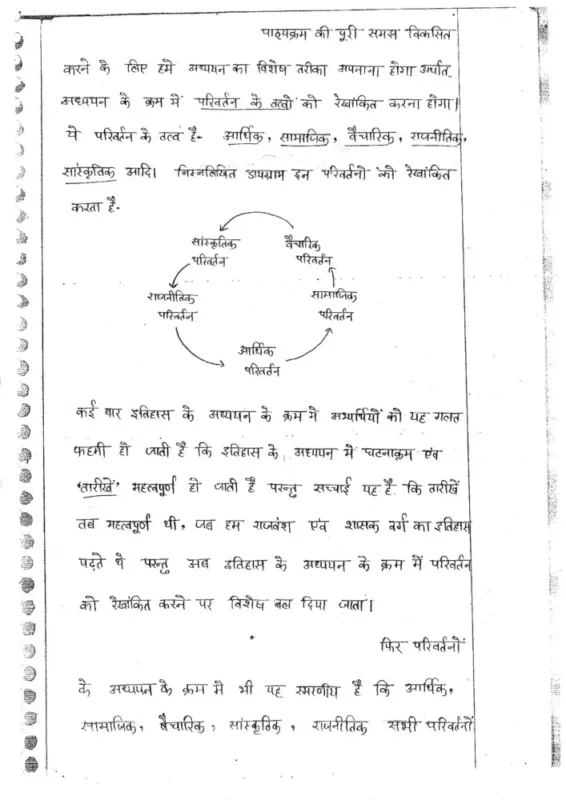 पाठ्यक्रम की पूरी समझ विकसित
करने के लिए हमें अध्ययन का विशेष तरीका अपनाना होगा अर्थात्
अध्ययन के क्रम में परिवर्तन के तत्वों को रेखांकित करना होगा।
ये परिवर्तन के तत्व हैं- आर्थिक, सामाजिक, वैचारिक, राजनीतिक,
सांस्कृतिक आदि। निम्नलिखित डायग्राम इन परिवर्तनों को रेखांकित
करता है-
सांस्कृतिक वैचारिक
परिवर्तन परिवर्तन
राजनीतिक सामाजिक
परिवर्तन परिवर्तन
आर्थिक
परिवर्तन
कई बार इतिहास के अध्ययन के क्रम में अभ्यर्थियों को यह गलत
फहमी हो जाती है कि इतिहास के अध्ययन में घटनाक्रम एवं
'तारीखें' महत्वपूर्ण हो जाती है परन्तु सच्चाई यह है कि तारीखें
तब महत्वपूर्ण थी, जब हम राजवंश एवं शासक वर्ग का इतिहास
पढ़ते थे परन्तु अब इतिहास के अध्ययन के क्रम में परिवर्तन
को रेखांकित करने पर विशेष बल दिया जाता।
फिर परिवर्तनों
के अध्ययन के क्रम में भी यह स्मरणीय है कि आर्थिक,
सामाजिक, वैचारिक, सांस्कृतिक, राजनीतिक सभी परिवर्तनों